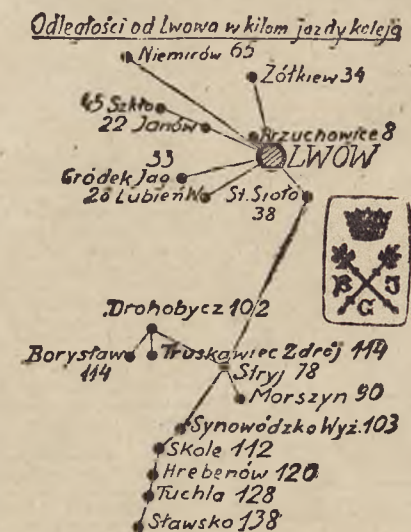 Odległości od Lwowa w kilom jazdy koleją
Niemirów 65
Żółkiew 34
45 Szkło
22 Janów
Brzuchowice 8
LWÓW
33
Gródek Jag
20 Lubień W
St. Sioło
38
B J
G
Drohobycz 102
Borysław
114
Truskawiec Zdrój 114
Stryj 78
Morszyn 90
Synowódzko Wyż. 103
Skole 112
Hrebenów 120
Tuchla 128
Sławsko 138